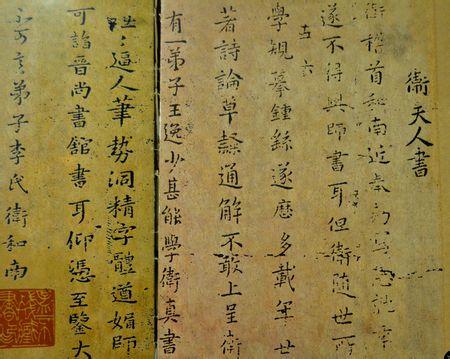 衛夫人書
衛稽首和南近奉勑寫急就章
遂不得與師書耳但衛隨世所
五六
學規摹鍾繇遂歷多載年廿
著詩論草隸通解不敢上呈衛
有一弟子王逸少甚能學衛真書
咄〻逼人筆勢洞精字體遒媚師
可詣晉尚書館書耳仰憑至鑒大
不可言弟子李氏衛和南